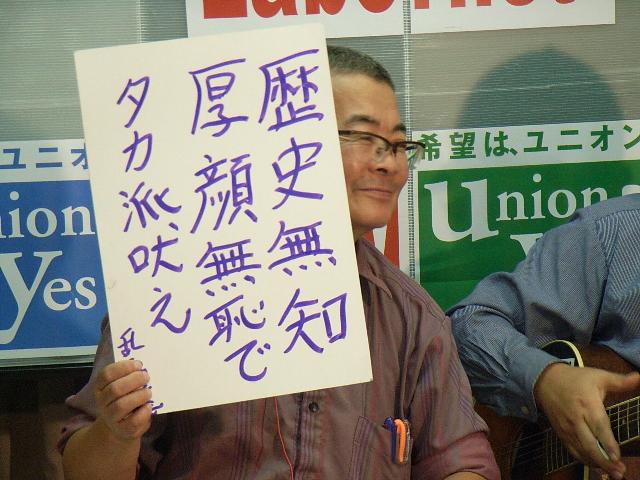 Labornet
歴史無知
厚顔無恥で
タカ派吠え
乱
ユニオ
nion
Yes
希望は、ユニオン
Union
Y